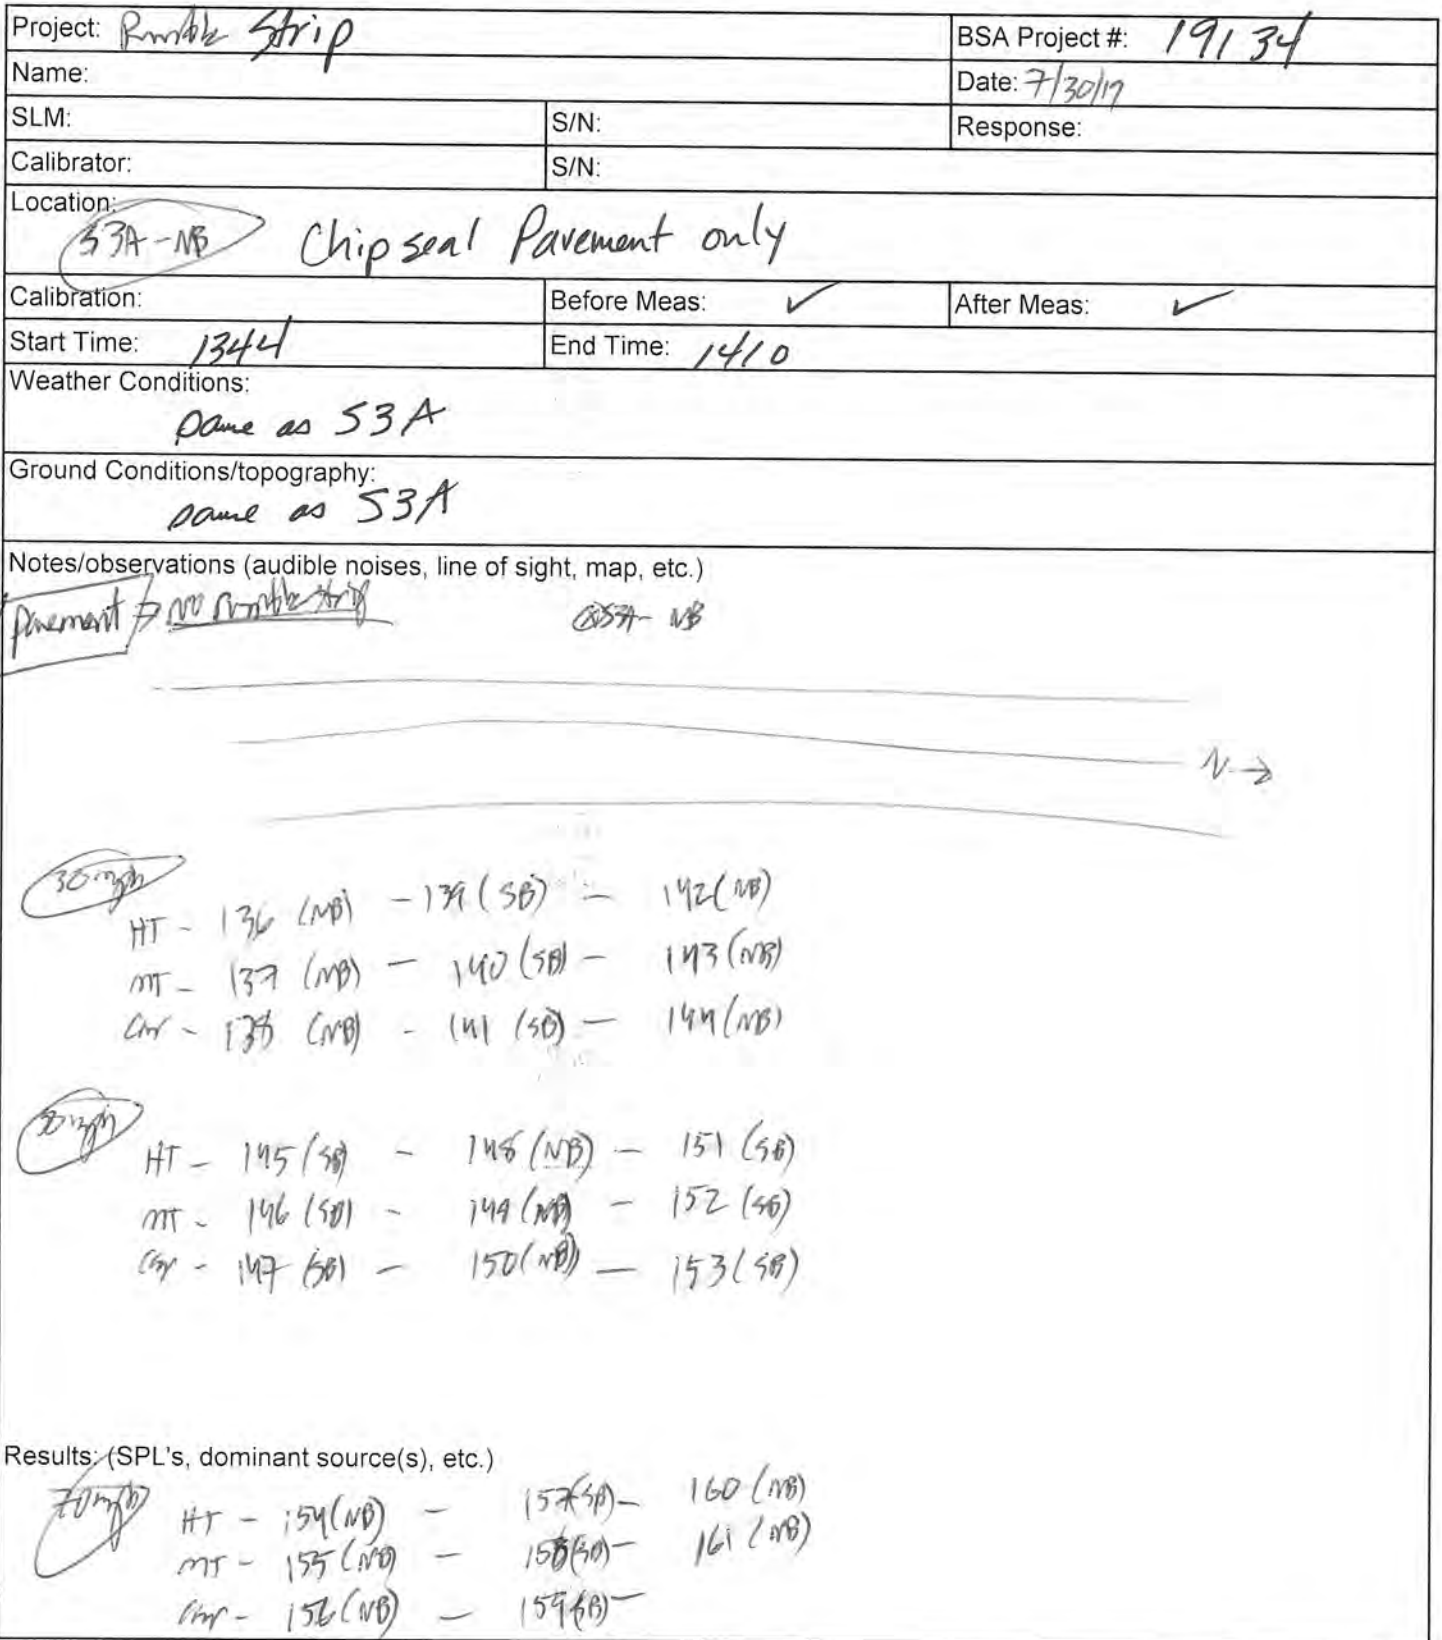 Project: Rumble Strip
BSA Project #: 19134
Name:
Date: 7/30/19
SLM:
S/N:
Response:
Calibrator:
S/N:
Location:
S3A-NB Chipseal Pavement only
Calibration:
Before Meas: ✓
After Meas: ✓
Start Time: 1344
End Time: 1410
Weather Conditions:
same as S3A
Ground Conditions/topography:
same as S3A
Notes/observations (audible noises, line of sight, map, etc.)
pavement → no rumble strip
@S3A- NB
N →
mph
HT - 136 (NB) - 139 (SB) - 142 (NB)
MT - 137 (NB) - 140 (SB) - 143 (NB)
Car - 138 (NB) - 141 (SB) - 144 (NB)
mph
HT - 145 (SB) - 148 (NB) - 151 (SB)
MT - 146 (SB) - 149 (NB) - 152 (SB)
Car - 147 (SB) - 150 (NB) - 153 (SB)
Results: (SPL's, dominant source(s), etc.)
70 mph
HT - 154 (NB) - 157 (SB) - 160 (NB)
MT - 155 (NB) - 158 (SB) - 161 (NB)
Car - 156 (NB) - 159 (SB) -